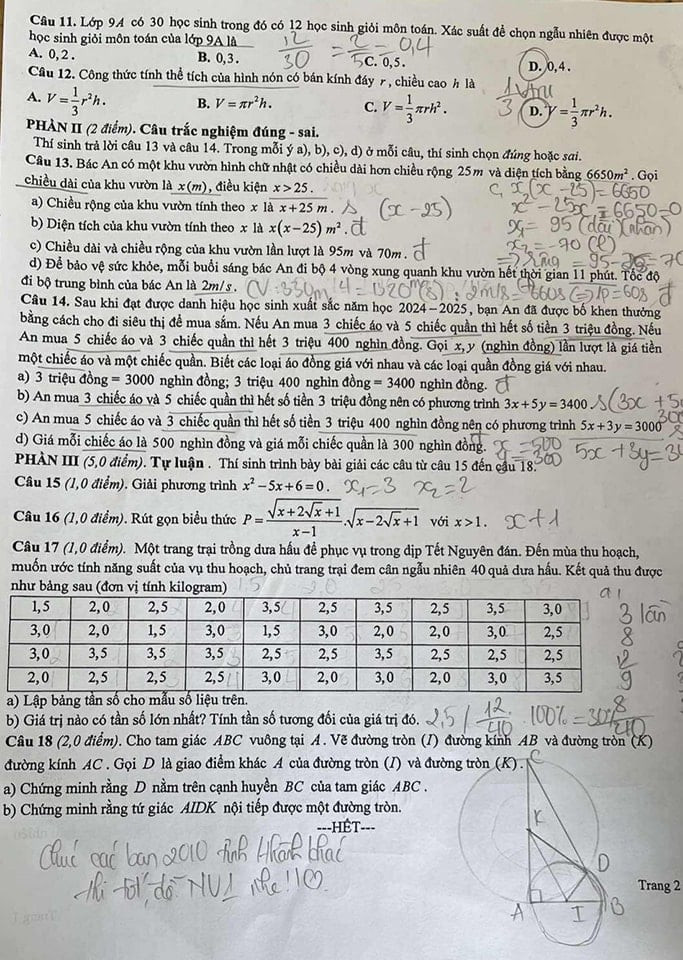 Câu 11. Lớp 9A có 30 học sinh trong đó có 12 học sinh giỏi môn toán. Xác suất để chọn ngẫu nhiên được một
học sinh giỏi môn toán của lớp 9A là 12/30 = 2/5 = 0,4
A. 0,2. B. 0,3. C. 0,5. D. 0,4.
Câu 12. Công thức tính thể tích của hình nón có bán kính đáy r, chiều cao h là
A. V = 1/3 r²h. B. V = πr²h. C. V = 1/3 πrh². D. V = 1/3 πr²h.
PHẦN II (2 điểm). Câu trắc nghiệm đúng - sai.
Thí sinh trả lời câu 13 và câu 14. Trong mỗi ý a), b), c), d) ở mỗi câu, thí sinh chọn đúng hoặc sai.
Câu 13. Bác An có một khu vườn hình chữ nhật có chiều dài hơn chiều rộng 25m và diện tích bằng 6650m². Gọi
chiều dài của khu vườn là x(m), điều kiện x > 25. c, x(x-25) = 6650
a) Chiều rộng của khu vườn tính theo x là x + 25 m. s (x-25) x² - 25x - 6650 = 0
b) Diện tích của khu vườn tính theo x là x(x-25) m². đ x₁ = 95 (dài) (nhận)
c) Chiều dài và chiều rộng của khu vườn lần lượt là 95m và 70m. đ x₂ = -70 (l)
=> rộng = 95 - 25 = 70
d) Để bảo vệ sức khỏe, mỗi buổi sáng bác An đi bộ 4 vòng xung quanh khu vườn hết thời gian 11 phút. Tốc độ
đi bộ trung bình của bác An là 2m/s. (V: 330m . 4 = 1320m) : 2m/s = 660s đ
Câu 14. Sau khi đạt được danh hiệu học sinh xuất sắc năm học 2024 – 2025, bạn An đã được bố khen thưởng
bằng cách cho đi siêu thị để mua sắm. Nếu An mua 3 chiếc áo và 5 chiếc quần thì hết số tiền 3 triệu đồng. Nếu
An mua 5 chiếc áo và 3 chiếc quần thì hết 3 triệu 400 nghìn đồng. Gọi x, y (nghìn đồng) lần lượt là giá tiền
một chiếc áo và một chiếc quần. Biết các loại áo đồng giá với nhau và các loại quần đồng giá với nhau.
a) 3 triệu đồng = 3000 nghìn đồng; 3 triệu 400 nghìn đồng = 3400 nghìn đồng. đ
b) An mua 3 chiếc áo và 5 chiếc quần thì hết số tiền 3 triệu đồng nên có phương trình 3x + 5y = 3400 s (3x + 5
c) An mua 5 chiếc áo và 3 chiếc quần thì hết số tiền 3 triệu 400 nghìn đồng nên có phương trình 5x + 3y = 3000 s
d) Giá mỗi chiếc áo là 500 nghìn đồng và giá mỗi chiếc quần là 300 nghìn đồng. đ x = 500 y = 300 5x + 3y = 34
PHẦN III (5,0 điểm). Tự luận . Thí sinh trình bày bài giải các câu từ câu 15 đến câu 18.
Câu 15 (1,0 điểm). Giải phương trình x² - 5x + 6 = 0. x₁ = 3 x₂ = 2
Câu 16 (1,0 điểm). Rút gọn biểu thức P = √(x + 2√x + 1)/(x - 1) . √(x - 2√x + 1) với x > 1. x + 1
Câu 17 (1,0 điểm). Một trang trại trồng dưa hấu để phục vụ trong dịp Tết Nguyên đán. Đến mùa thu hoạch,
muốn ước tính năng suất của vụ thu hoạch, chủ trang trại đem cân ngẫu nhiên 40 quả dưa hấu. Kết quả thu được
như bảng sau (đơn vị tính kilogram)
1,5 2,0 2,5 2,0 3,5 2,5 3,5 2,5 3,5 3,0
3,0 2,0 1,5 3,0 1,5 3,0 2,0 2,0 3,0 2,5
3,0 3,5 3,5 3,5 2,5 2,5 3,5 2,5 2,5 2,5
2,0 2,5 2,5 2,5 3,0 2,0 3,0 2,0 3,0 3,5
3 lần
8
12
9
8
a) Lập bảng tần số cho mẫu số liệu trên.
b) Giá trị nào có tần số lớn nhất? Tính tần số tương đối của giá trị đó. 2,5 / 12/40 . 100% = 30%
Câu 18 (2,0 điểm). Cho tam giác ABC vuông tại A. Vẽ đường tròn (I) đường kính AB và đường tròn (K)
đường kính AC. Gọi D là giao điểm khác A của đường tròn (I) và đường tròn (K).
a) Chứng minh rằng D nằm trên cạnh huyền BC của tam giác ABC.
b) Chứng minh rằng tứ giác AIDK nội tiếp được một đường tròn.
---HẾT---
Chúc các bạn 2010 tỉnh Hành khai
thi tốt, đỗ NV1 nhe!!
C
K
D
A I B
Trang 2